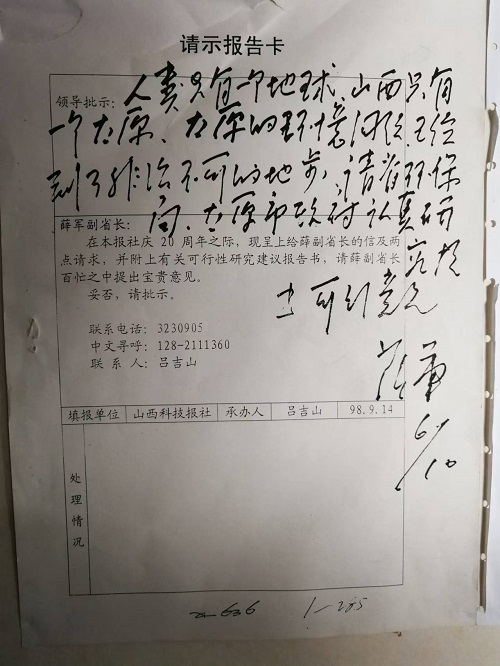 请示报告卡
领导批示：
人类只有一个地球，山西只有
一个太原、太原的环境污染已经
到了非治不可的地步，请省环保
局、太原市政府认真研究
提出可行意见
薛军
6/10
薛军副省长：
在本报社庆 20 周年之际，现呈上给薛副省长的信及两
点请求，并附上有关可行性研究建议报告书，请薛副省长
百忙之中提出宝贵意见。
妥否，请批示。
联系电话：3230905
中文寻呼：128-2111360
联 系 人：吕吉山
填报单位 山西科技报社 承办人 吕吉山 98.9.14
处理情况
636 1-285